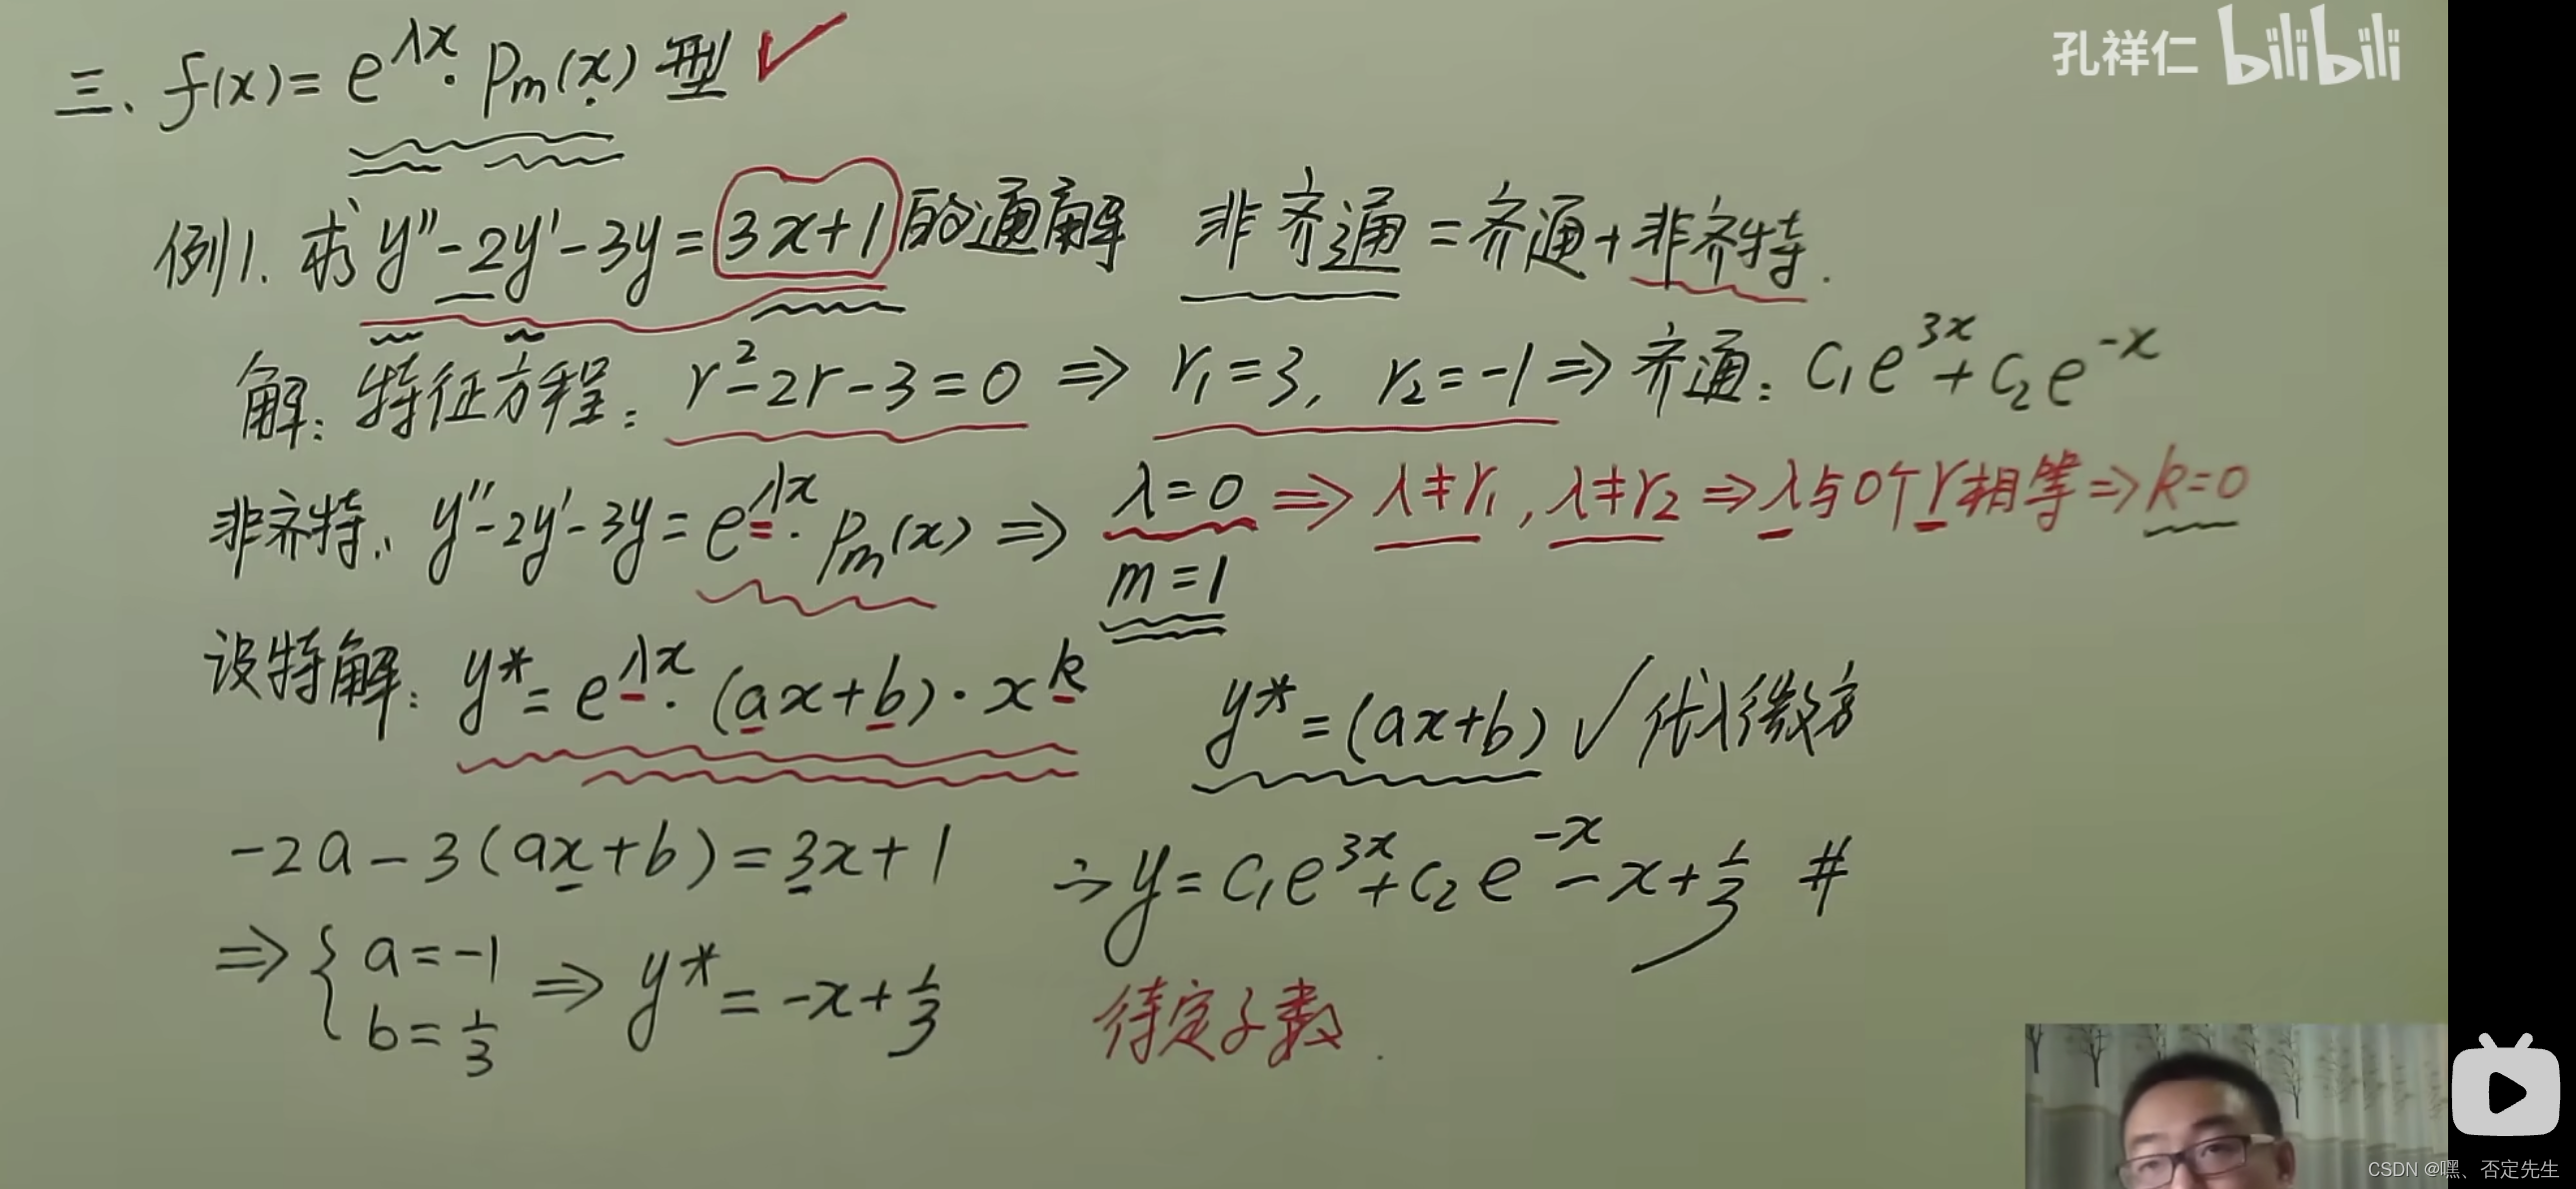 孔祥仁 bilibili
三、f(x)=e^{λx}·Pm(x)型 ✓
例1. 求y''-2y'-3y=3x+1的通解 非齐通=齐通+非齐特.
解: 特征方程: r²-2r-3=0 ⇒ r₁=3, r₂=-1 ⇒ 齐通: C₁e^{3x}+C₂e^{-x}
非齐特: y''-2y'-3y=e^{λx}·Pm(x) ⇒ λ=0 ⇒ λ≠r₁, λ≠r₂ ⇒ λ与0个r相等 ⇒ k=0
m=1
设特解: y*=e^{λx}·(ax+b)·x^k y*=(ax+b) ✓ 代入微方
-2a-3(ax+b)=3x+1 ∴y=C₁e^{3x}+C₂e^{-x}-x+1/3 #
⇒ { a=-1 b=1/3 ⇒ y*=-x+1/3
待定系数.
CSDN @嘿、否定先生